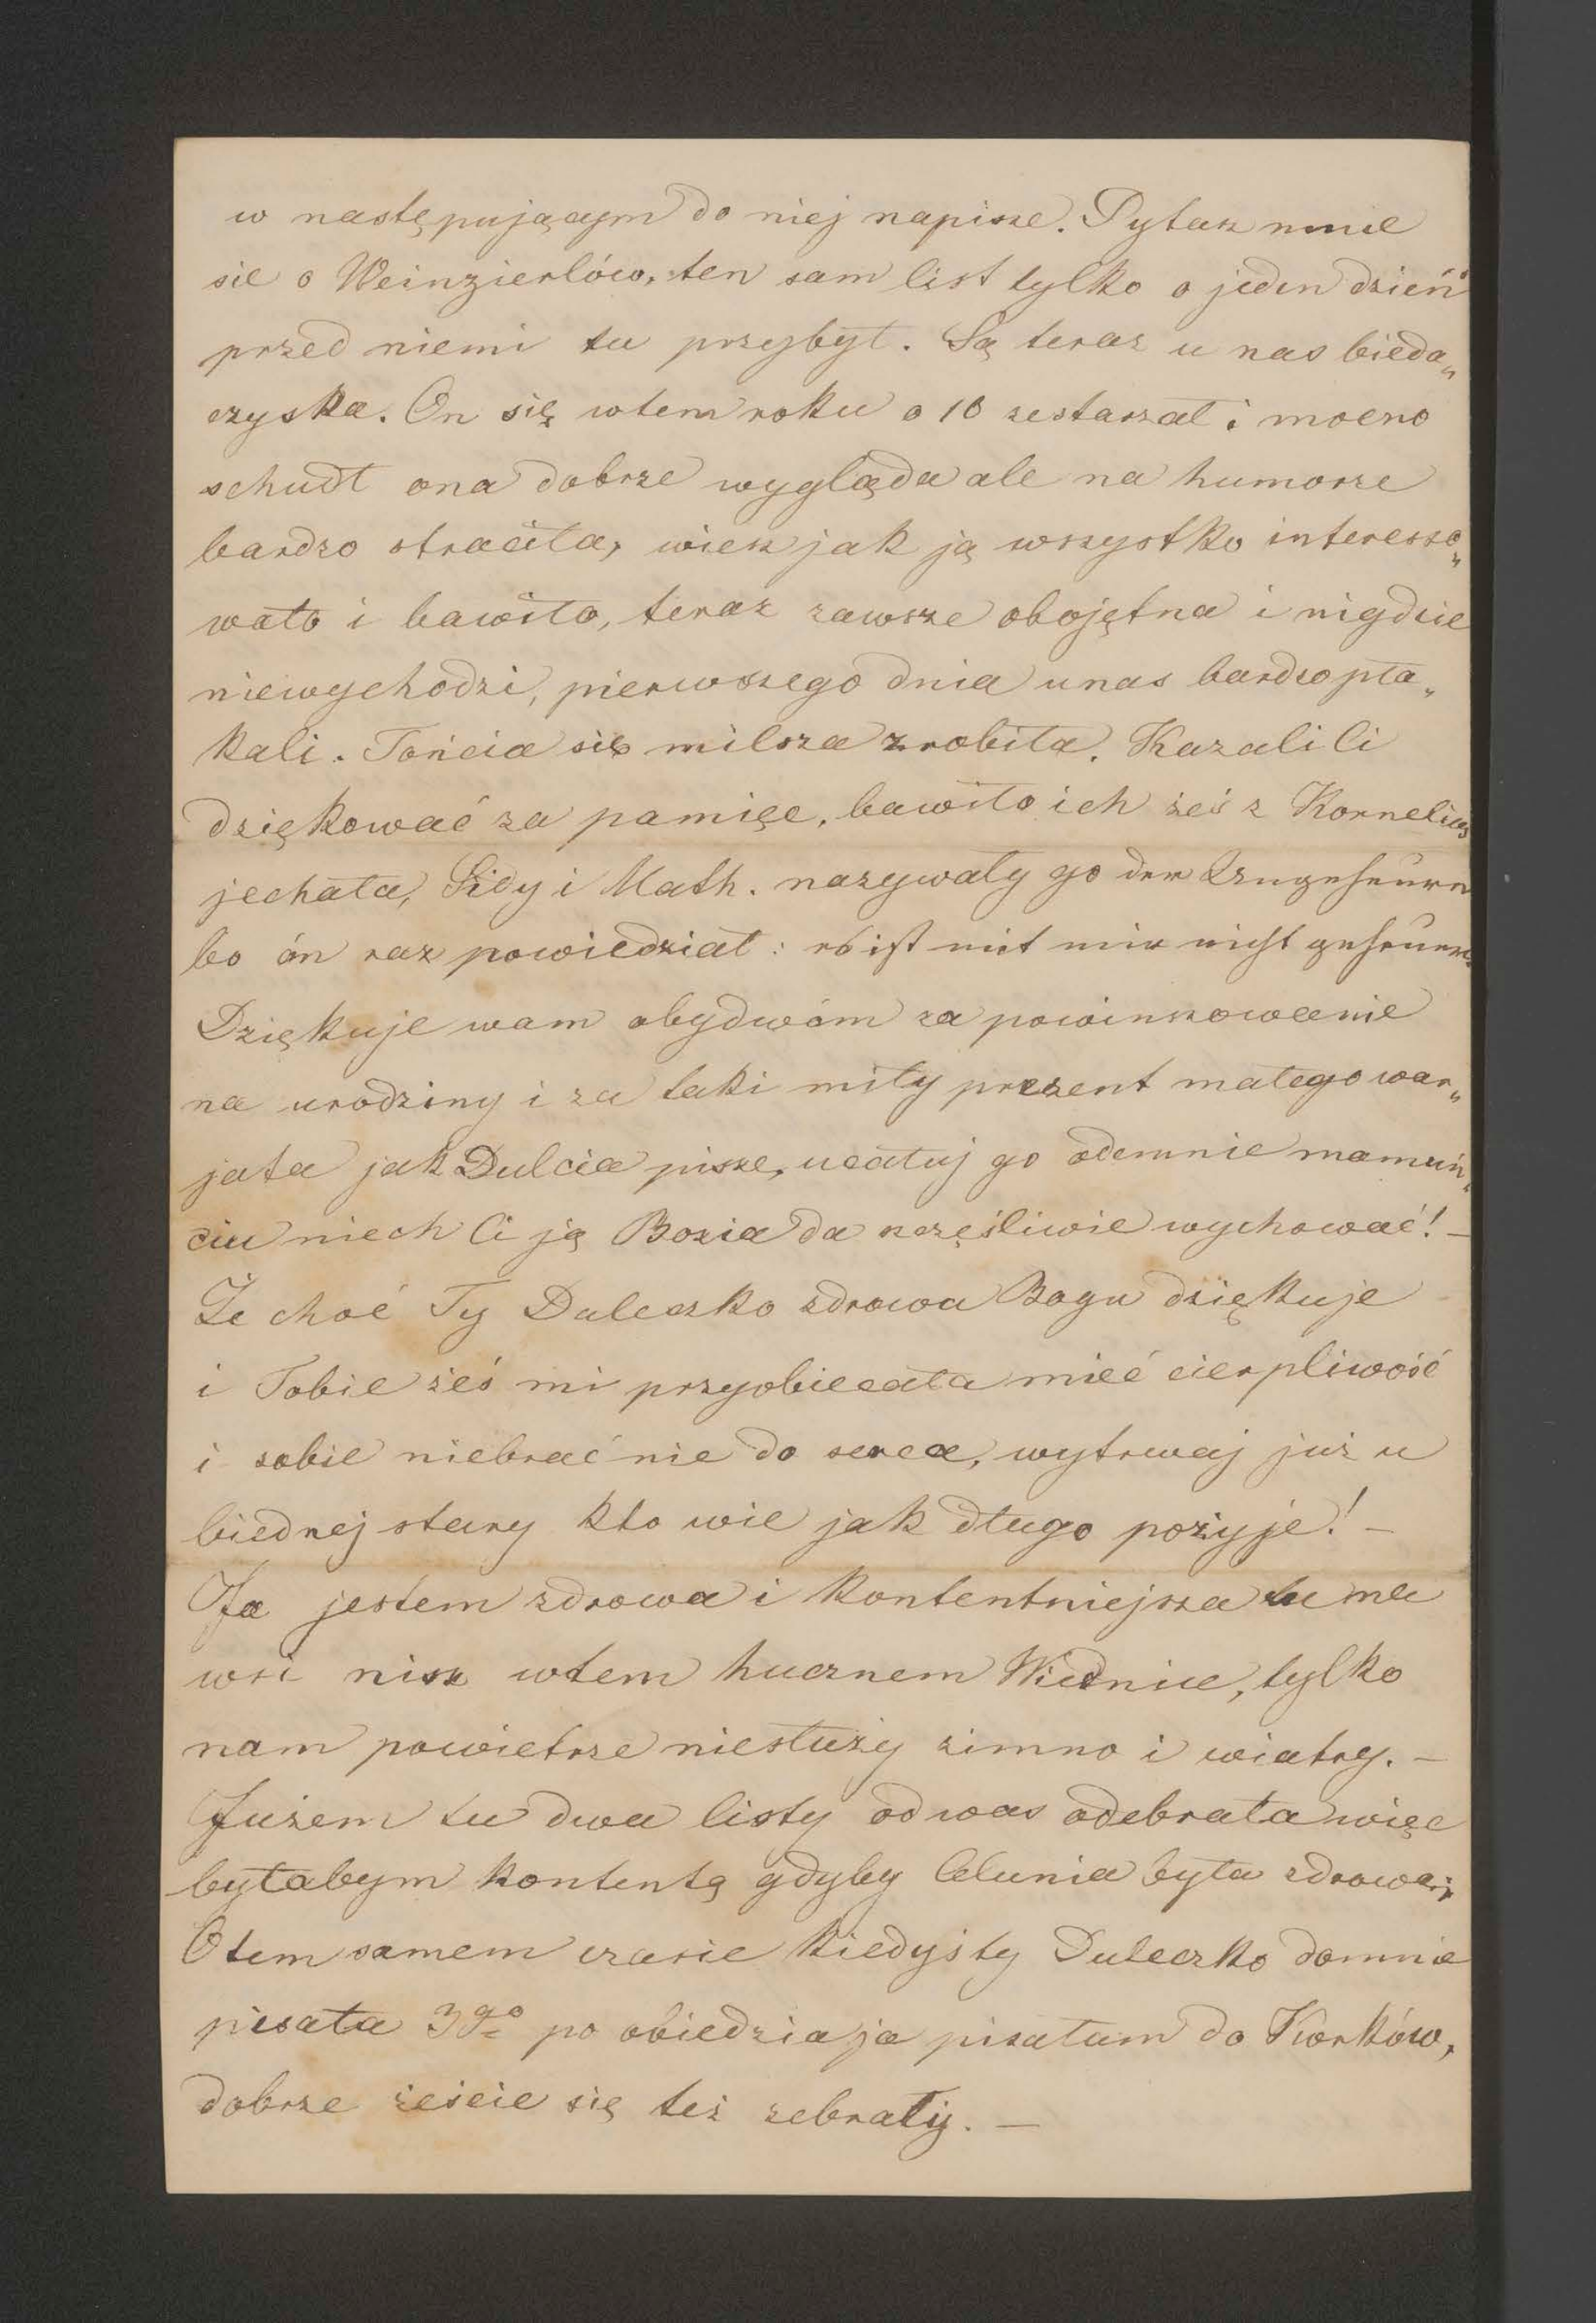 w następującym do niej napisze. Pytasz mnie
sie o Weinzierlów, ten sam list tylko o jeden dzień
przed niemi tu przybył. Są teraz u nas bieda„
czyska. On się wtem roku o 10 zestarzał i mocno
schudł ona dobrze wygląda ale na humorze
bardzo straciła, wiesz jak ją wszystko interesso„
wało i bawiło, teraz zawsze obojętna i nigdzie
niewychodzi, pierwszego dnia unas bardzo pła„
kali. Tońcia się milsza zrobiła. Kazali Ci
dziękować za pamięc, bawiło ich żeś z Kornelius
jechała, Sidy i Math. nazywały go der Ungeheure
bo ón raz powiedział: es ist mit mir nicht geheuer.
Dziękuje wam obydwóm za powinszowanie
na urodziny i za taki miły prezent małego war„
jata jak Dulcia pisze, ucałuj go odemnie mamuń„
ciu niech Ci ją Bozia da szczęśliwie wychować! –
Że choć Ty Duleczko zdrowa Bogu dziękuje
i Tobie żeś mi przyobiecała mieć cierpliwość
i sobie niebrać nic do serca, wytrwaj już u
biednej stary kto wie jak długo pożyje! –
Ja jestem zdrowa i kontentniejsza tu na
wsi nisz wtem hucznem Wiedniu, tylko
nam powietrze niesłuży zimno i wiatry. –
Jużem tu dwa listy od was odebrała więc
byłabym kontentą gdyby Celunia była zdrowa,
Otem samem czasie kiedyś ty Duleczko domnie
pisała 3go po obiedzie ja pisałam do Korków,
dobrze żeście się też zebrały. –